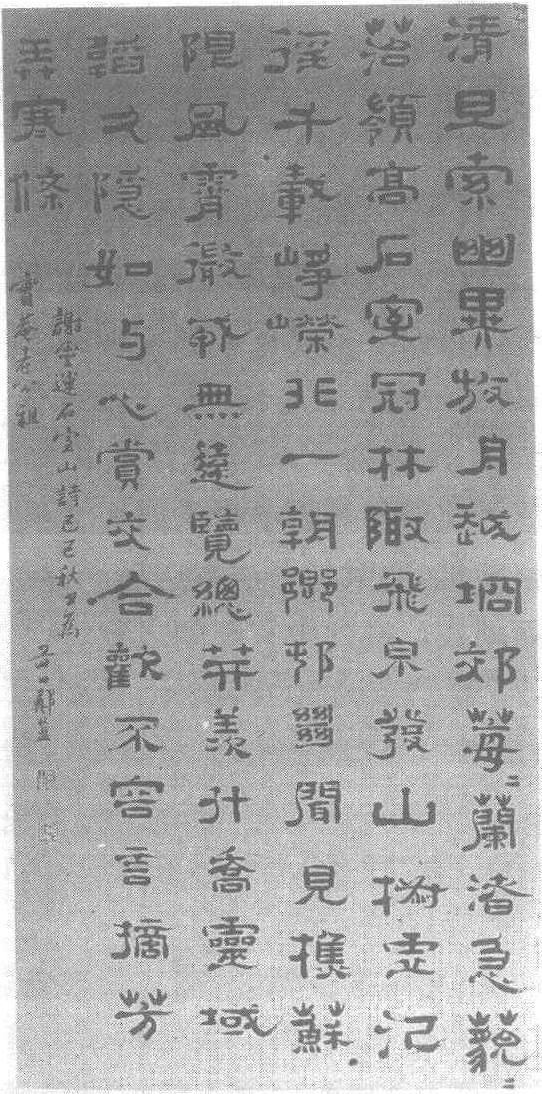 清旦索幽異放舟越坰郊莓〻蘭渚急藐〻
苔嶺高石室冠林陬飛泉發山椒虛汜
徑千載崢嶸非一朝鄉邨絕聞見樵蘇
限風霄微戎無遠覽總笄羨升喬靈域
韜久隱如与心賞交合歡不容言摘芳
弄寒條
謝靈運石室山詩己巳秋日為
寶菴老公祖
谷口鄭簠